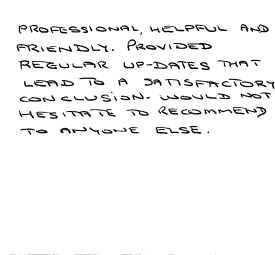 PROFESSIONAL, HELPFUL AND
FRIENDLY. PROVIDED
REGULAR UP-DATES THAT
LEAD TO A SATISFACTORY
CONCLUSION. WOULD NOT
HESITATE TO RECOMMEND
TO ANYONE ELSE.